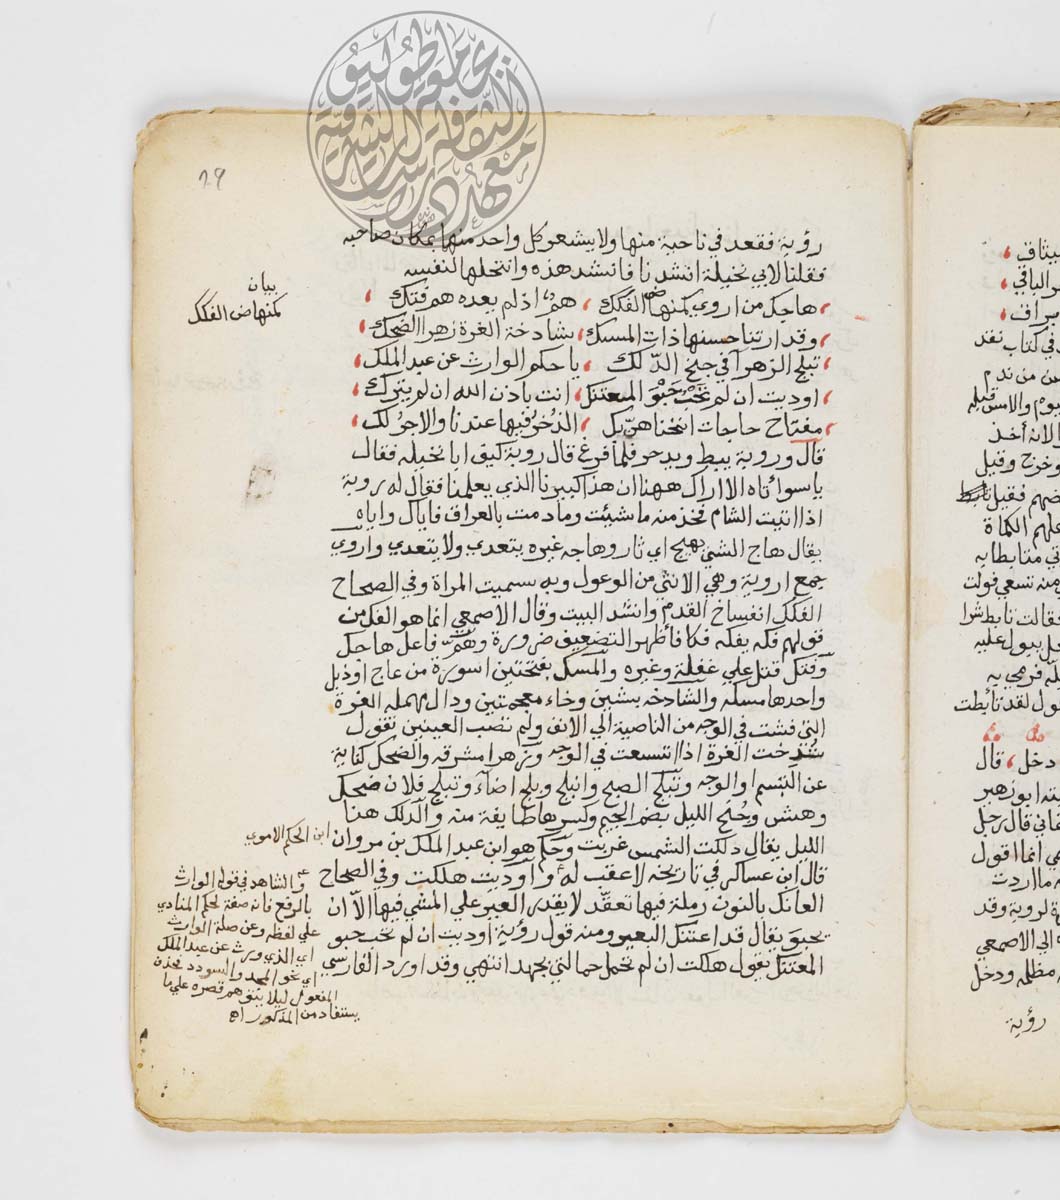 رؤبة فقعد في ناحية منها ولا يشعر كل واحد منهما بمكان صاحبه
فقلنا لابي نخيلة انشدنا فانشد هذه وانتحلها لنفسه
هاجك من اروي كمنهاض الفكك ، هم اذا لم يعده هم فتك
وقد ارتنا حسنها ذات المسك ، شادخة الغرة زهرا الضحك
تبلج الزهرا في جنح الدلك ، يا حكم الوارث عن عبد الملك
اوديت ان لم تحب حبو المعتنك ، انت باذن الله ان لم يترك
مفتاح حاجات انخناهن بك ، الذخر فيها عندنا والاجر لك
قال ورؤبة يئط ويزحر فلما فرغ قال رؤبة كيف ابا نخيله فقال
يا سوأتاه الا اراك ههنا ان هذا كبيرنا الذي يعلمنا فقال له رؤبة
اذا اتيت الشام فخذ منه ما شئت وما دمت بالعراق فاياك واياه
يقال هاج الشي يهيج اي ثار وهاجه غيره يتعدي ولا يتعدي واروي
جمع اروية وهي الانثي من الوعول وبه سميت المراة وفي الصحاح
الفكك انفساخ القدم وانشد البيت وقال الاصمعي انما هو الفك من
قولهم فكه يفكه فكا فأظهر التضعيف ضرورة وهم فاعل هاجك
وفتك قتل علي غفلة وغيره والمسك بفتحتين اسورة من عاج اوذبل
واحدها مسكه والشادخه بشين وخاء معجمتين ودال مهمله الغرة
التي فشت في الوجه من الناصية الي الانف ولم تصب العينين تقول
شدخت الغرة اذا اتسعت في الوجه وزهرا مشرقه والضحك كناية
عن التبسم او الوجه وتبلج الصبح وانبلج وبلج اضاء وتبلج فلان ضحك
وهش وجنح الليل بضم الجيم وكسرها طايفة منه والدلك هنا
الليل يقال دلكت الشمس غربت وحكم هو ابن عبد الملك بن مروان
قال ابن عساكر في تاريخه لا عقب له واوديت هلكت وفي الصحاح
العانك بالنون رملة فيها تعقد لا يقدر العير علي المشي فيها الا ان
يحبو يقال قد اعتنك البعير ومنه قول رؤبة اوديت ان لم تحب حبو
المعتنك يقول هلكت ان لم تحمل حمالتي بجهد انتهي وقد اورد الفارسي
بيان
كمنهاض الفكك
ابن الحكم الاموي
والشاهد في قوله الوارث
بالرفع فانه صفة لحكم المنادي
علي لفظه وعن صلة الوارث
اي الذي ورث عن عبد الملك
اي نحو المجد والسودد فحذف
المفعول ليلا يتوهم قصره علي ما
يستفاد من المذكور اه
الباقي
في كتاب نقد
من ندم
يوم والامس قبله
الان أخذ
وخرج وقيل
عليهم الكماة
تسعي قولت
فقالت تابط شرا
يبول عليه
فرمي به
لقد تأبطت
دخل ، قال
ابو زهير
قال رجل
انما اقول
ما اردت
لرؤبة وقد
الي الاصمعي
مظلمه ودخل
رؤية